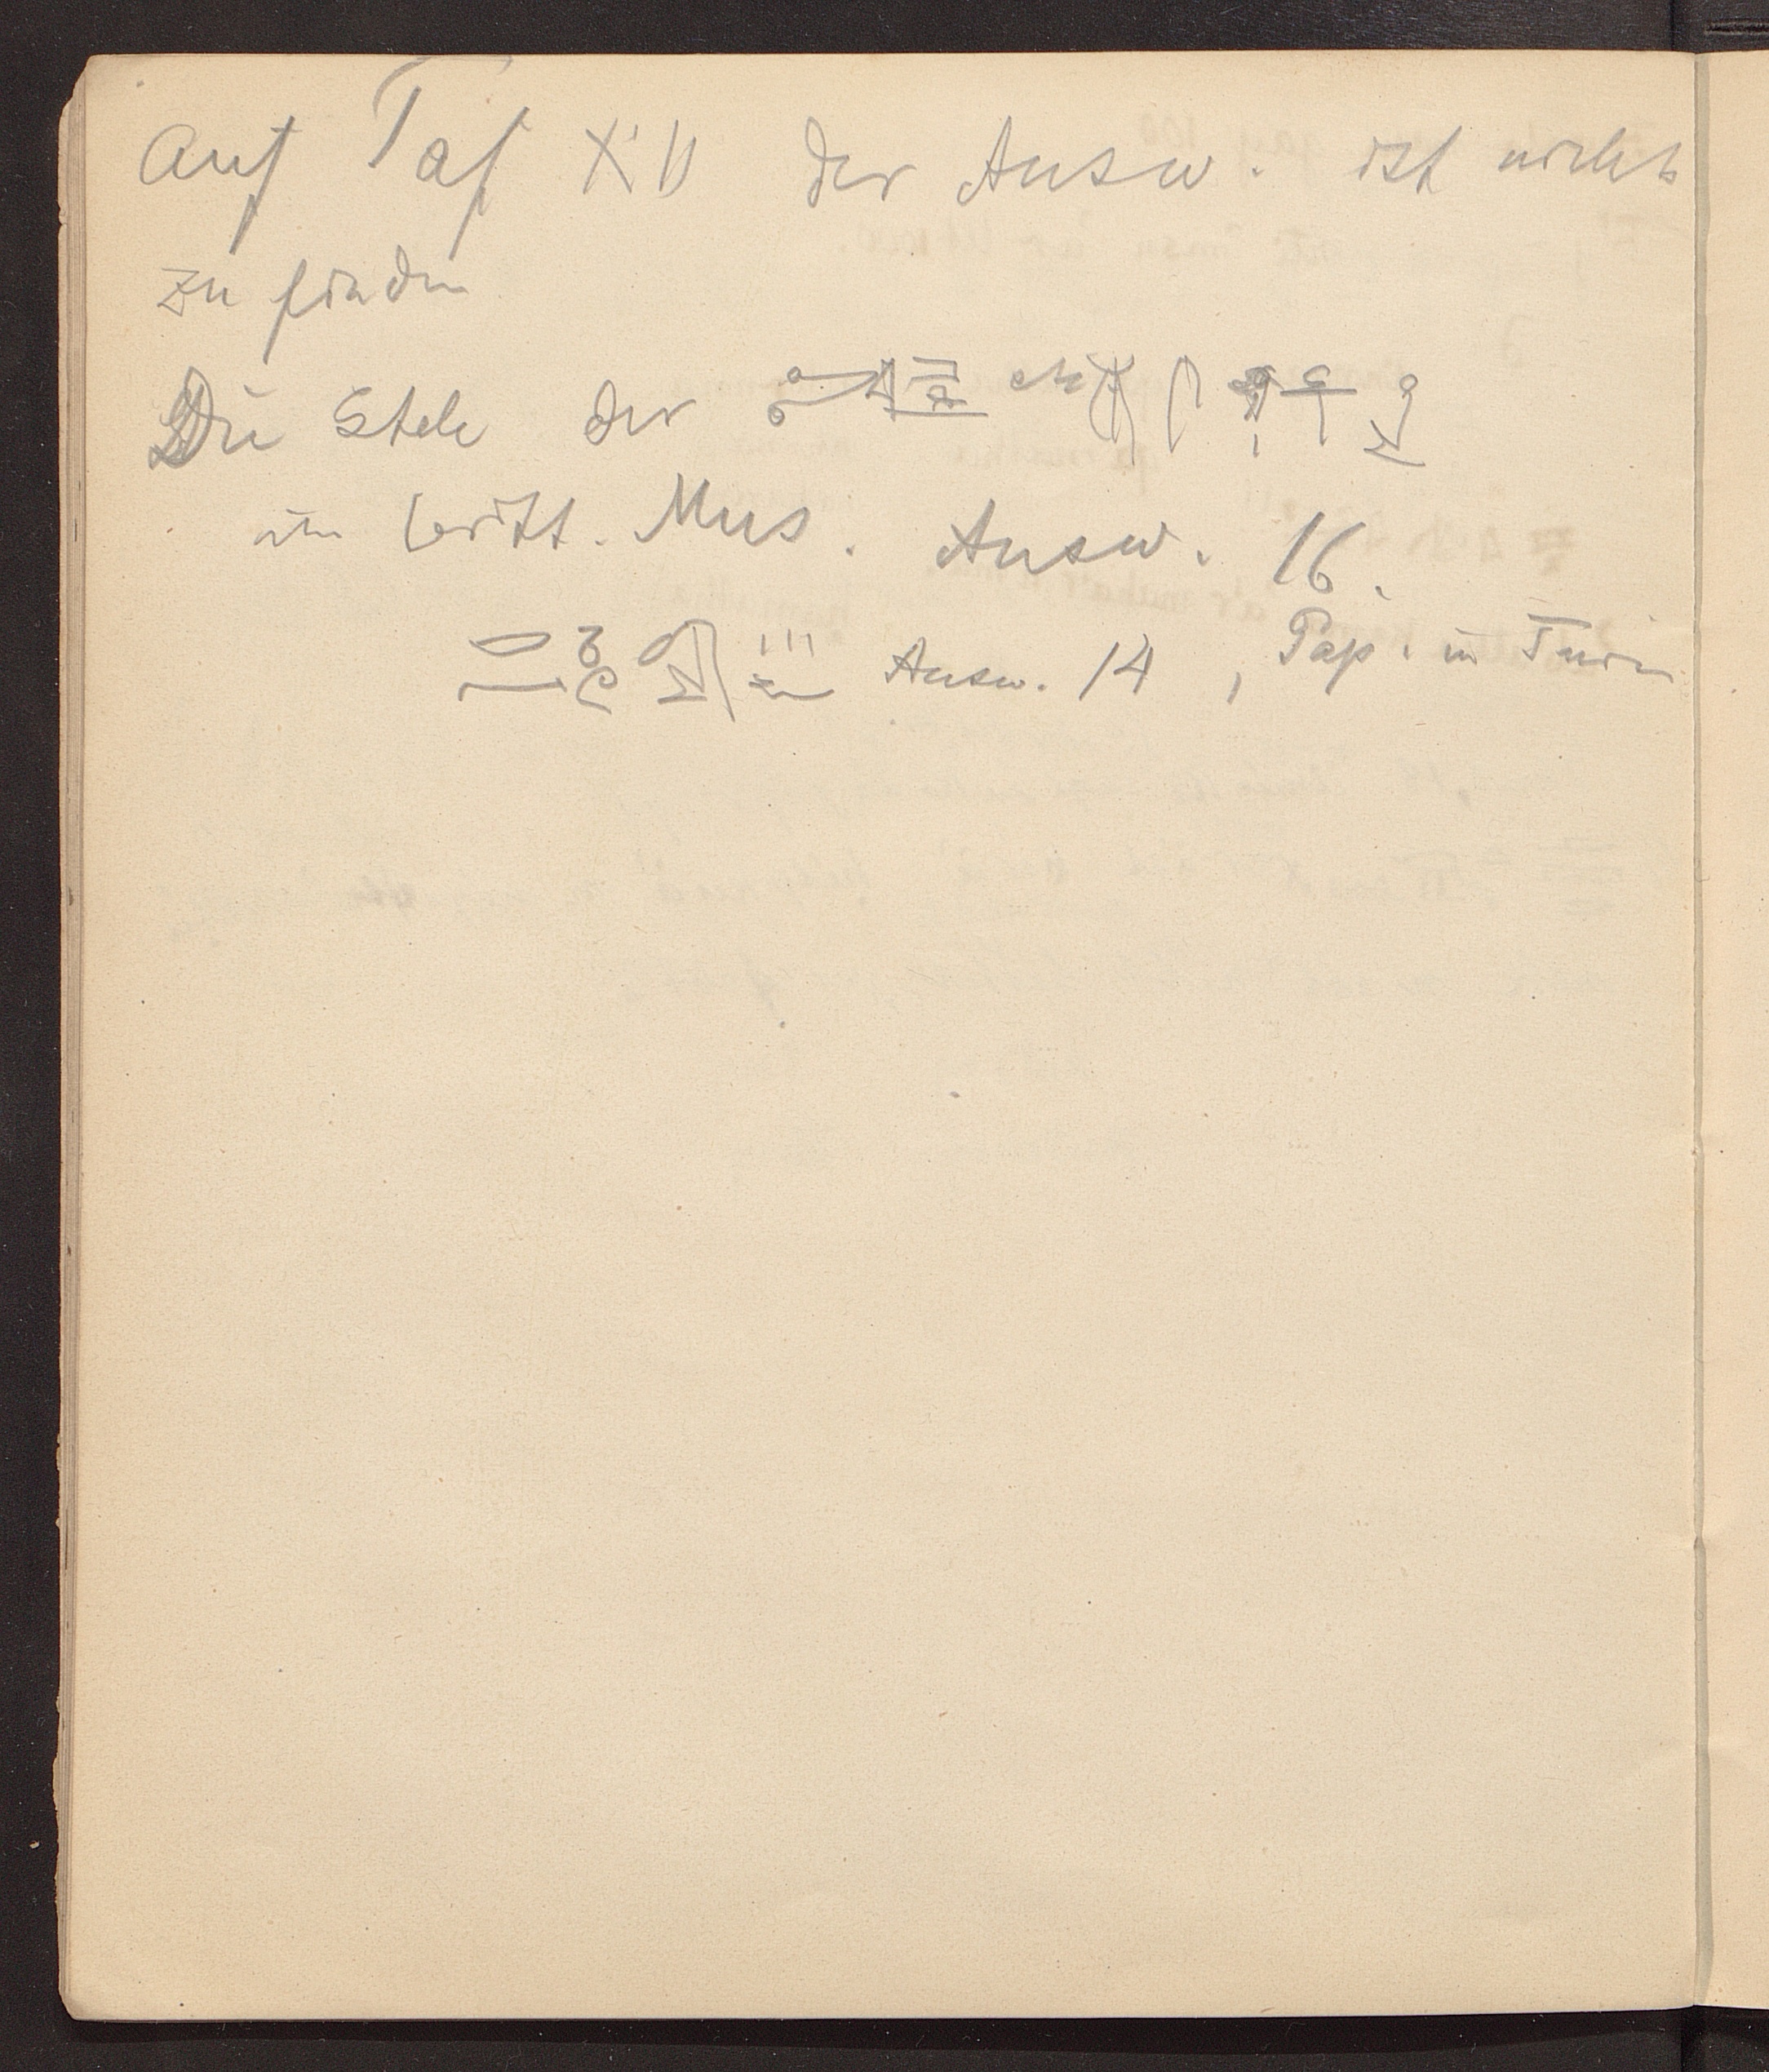 Auf Taf XV der Ausw. ist nichts
zu finden
Die Stele der
im britt. Mus. Ausw. 16.
Ausw. 14, Pap. in Turin